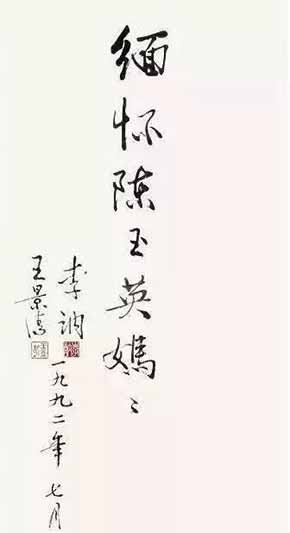 缅怀陈玉英媽〻
李讷
王景清
一九九二年 七月